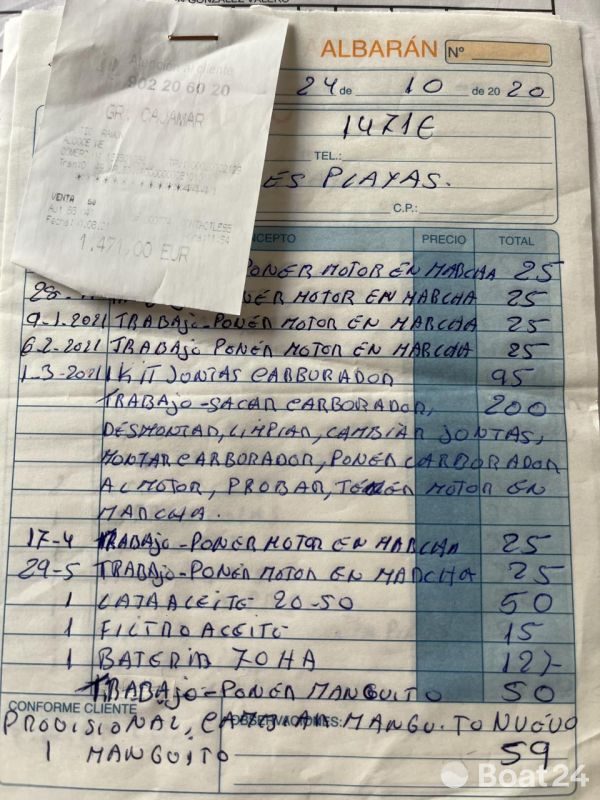 GONZALEZ VALERO
ALBARÁN Nº
Atención al cliente
902 20 60 20
GR. CAJAMAR
VENTA
1.471,00 EUR
24 de 10 de 20 20
1471€
TEL.:
ES PLAYAS.
C.P.:
NCEPTO PRECIO TOTAL
PONER MOTOR EN MARCHA 25
PONER MOTOR EN MARCHA 25
9-1-2021 TRABAJO-PONER MOTOR EN MARCHA 25
6-2-2021 TRABAJO PONER MOTOR EN MARCHA 25
1-3-2021 1 KIT JONTAS CARBORADOR 95
TRABAJO-SACAR CARBORADOR, 200
DESMONTAR, LIMPIAR, CAMBIAR JONTAS,
MONTAR CARBORADOR, PONER CARBORADOR
AL MOTOR, PROBAR, TENER MOTOR EN
MARCHA.
17-4 TRABAJO-PONER MOTOR EN MARCHA 25
29-5 TRABAJO-PONER MOTOR EN MARCHA 25
1 LATA ACEITE 20-50 50
1 FILTRO ACEITE 15
1 BATERIA 70HA 127-
TRABAJO-PONER MANGUITO 50
CONFORME CLIENTE OBSERVACIONES:
PROVISIONAL, MANGUITO NUEVO
1 MANGUITO 59
Boat24